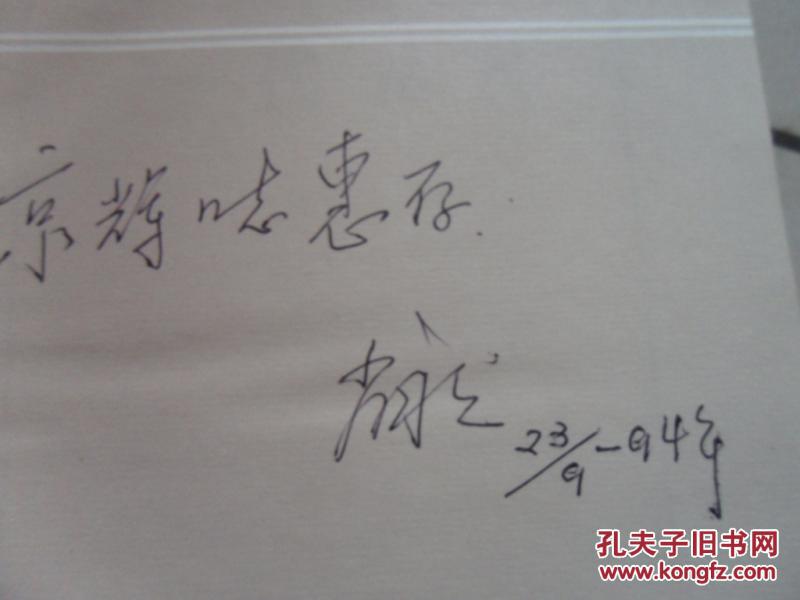 京辉 惠存.
23/9-94年
孔夫子旧书网
www.kongfz.com